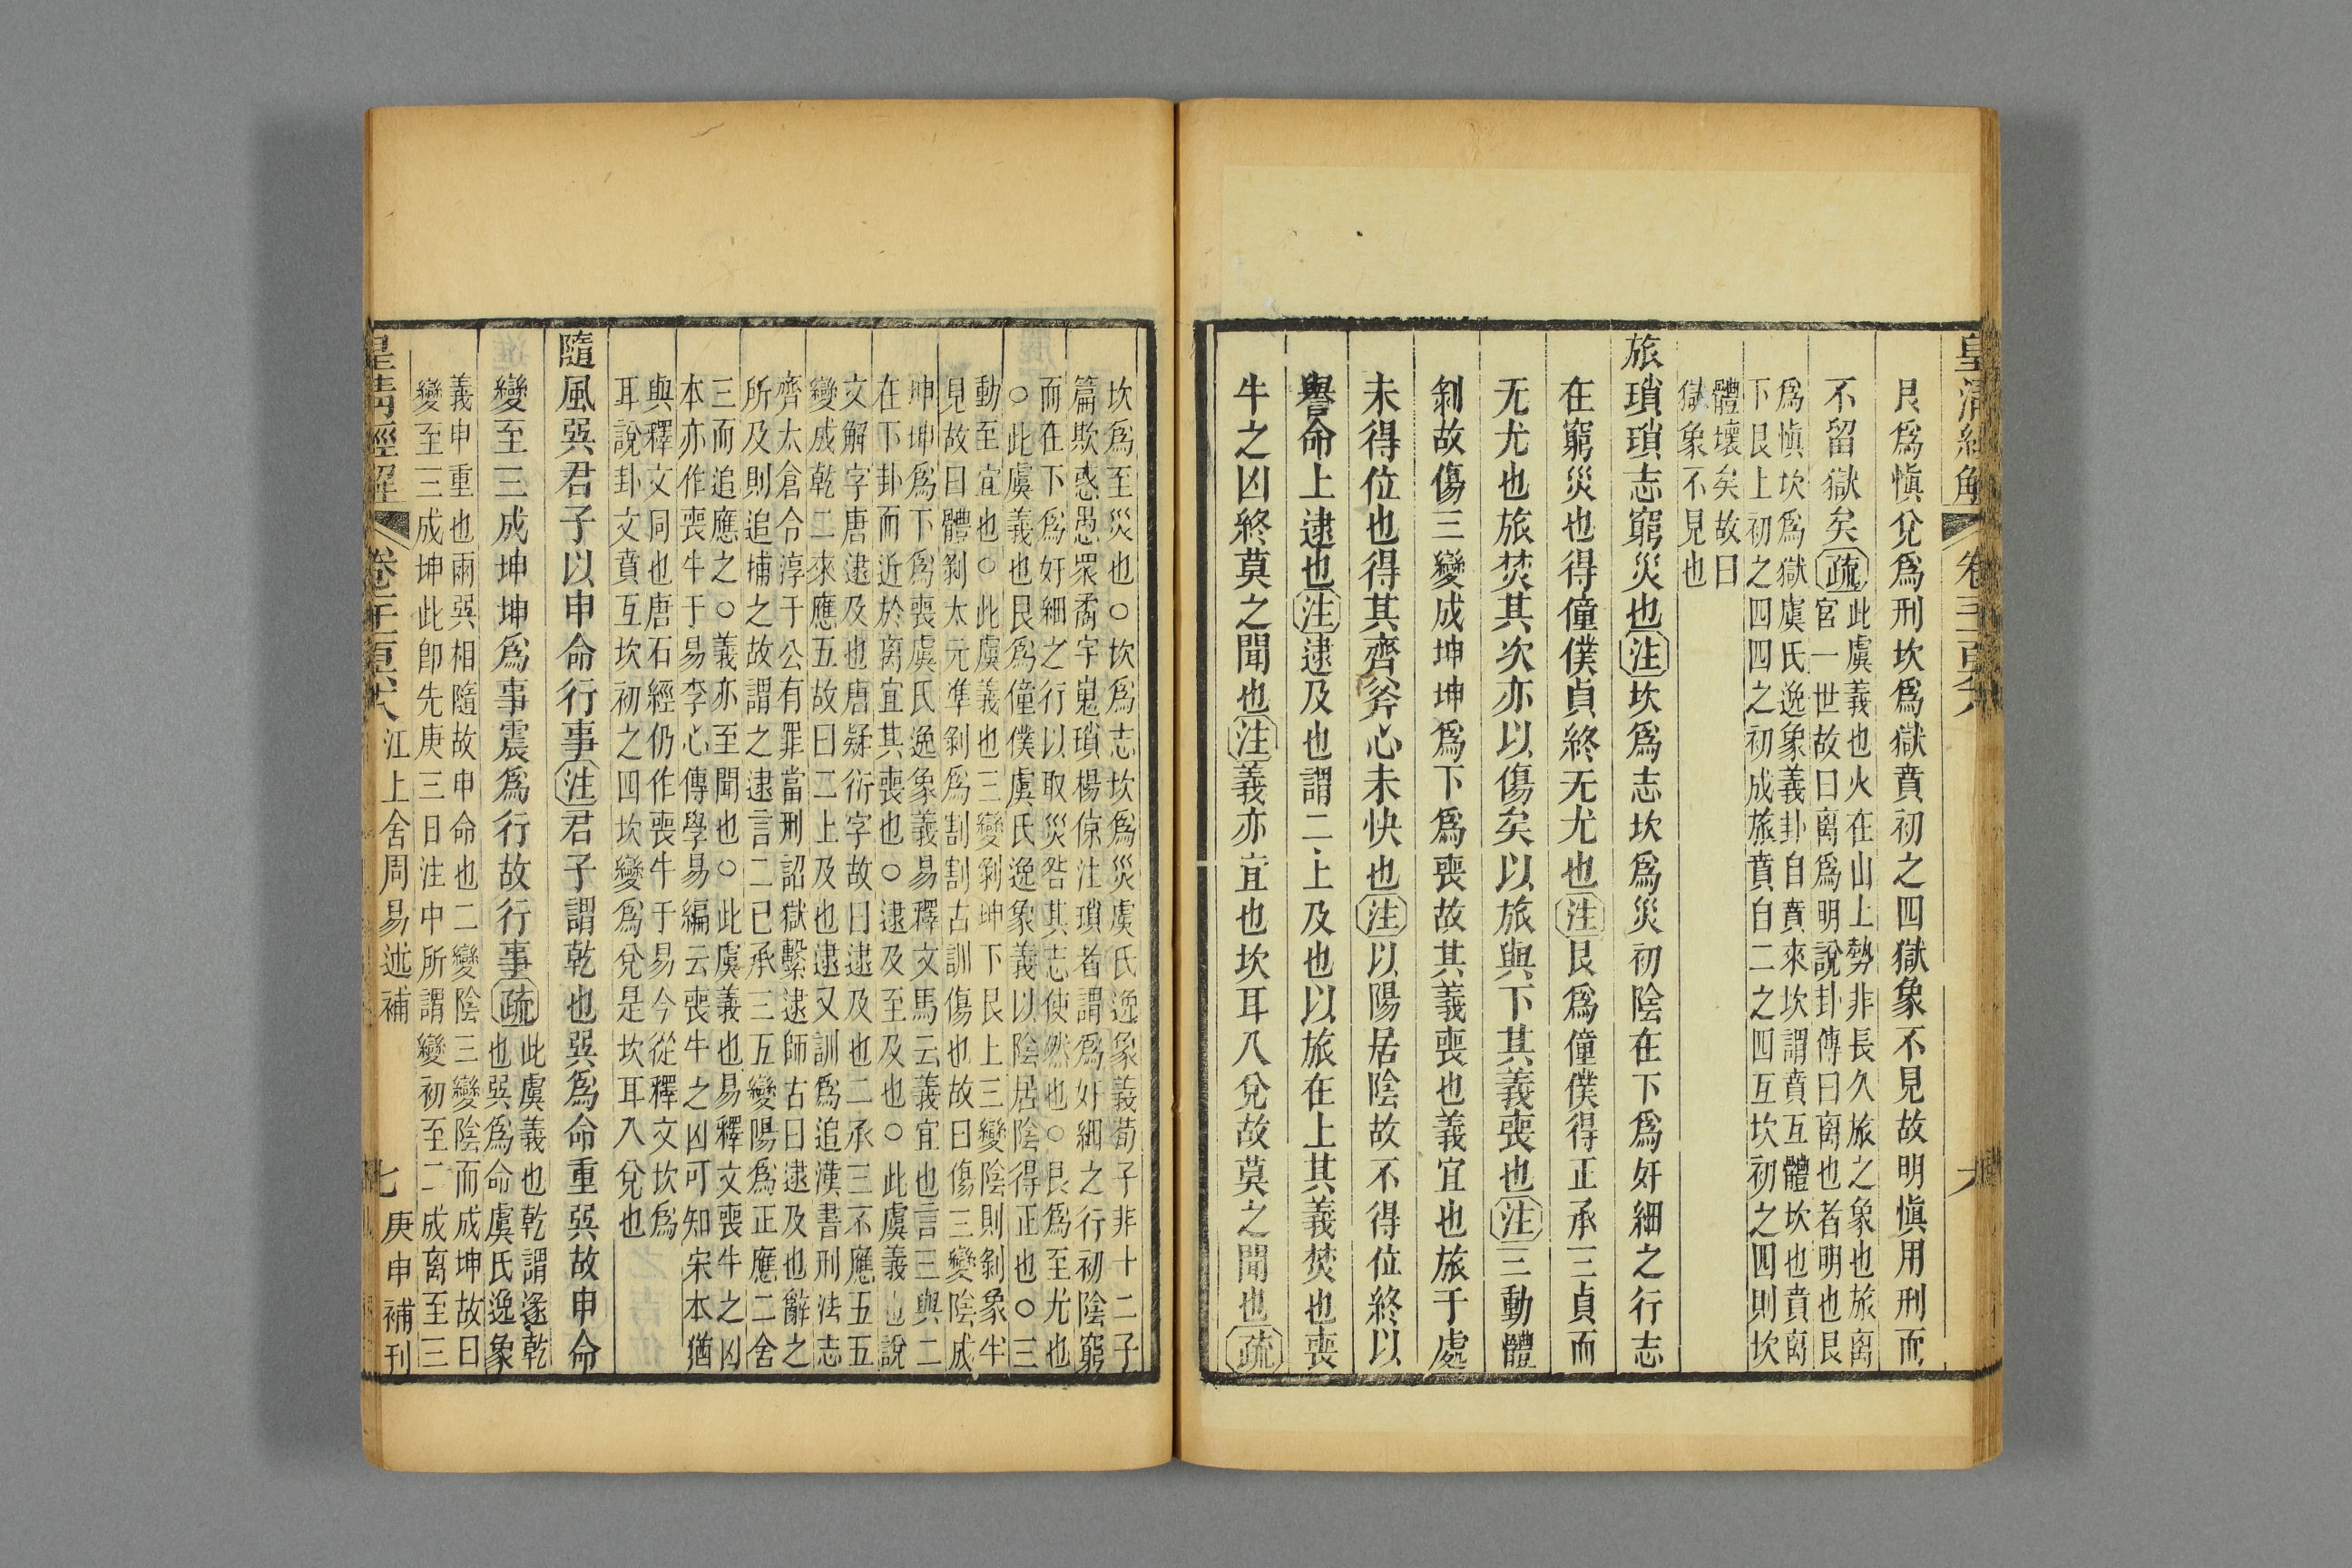 皇清經解
卷三百
艮爲愼兌爲刑坎爲獄賁初之四獄象不見故明愼用刑而
不留獄矣疏此虞義也火在山上勢非長久旅之象也旅离
宫一世故曰离爲明說卦傳曰离也者明也艮
爲愼坎爲獄虞氏逸象義卦自賁來坎謂賁互體坎也賁离
下艮上初之四四之初成旅賁自二之四互坎初之四則坎
體壞矣故曰
獄象不見也
旅瑣瑣志窮災也注坎爲志坎爲災初陰在下爲奸細之行志
在窮災也得僮僕貞終无尤也注艮爲僮僕得正承三貞而
无尤也旅焚其次亦以傷矣以旅與下其義喪也注三動體
剝故傷三變成坤坤爲下爲喪故其義喪也義宜也旅于處
未得位也得其齊斧心未快也注以陽居陰故不得位終以
譽命上逮也注逮及也謂二上及也以旅在上其義焚也喪
牛之凶終莫之聞也注義亦宜也坎耳入兌故莫之聞也疏
坎爲至災也○坎爲志坎爲災虞氏逸象義荀子非十二子
篇欺惑愚眾矞宇嵬瑣楊倞注瑣者謂爲奸細之行初陰窮
而在下爲奸細之行以取災咎其志使然也○艮爲至尤也
○此虞義也艮爲僮僕虞氏逸象義以陰居陰得正也○三
動至宜也○此虞義也三變剝坤下艮上三變陰則剝象牛
見故曰體剝太元準剝爲割割古訓傷也故曰傷三變陰成
坤坤爲下爲喪虞氏逸象義易釋文馬云義宜也言三與二
在下卦而近於离宜其喪也○逮及至及也○此虞義也說
文解字唐逮及也唐疑衍字故曰逮及也二承三不應五五
變成乾二來應五故曰二上及也逮又訓爲追漢書刑法志
齊太倉令淳于公有罪當刑詔獄繫逮師古曰逮及也辭之
所及則追捕之故謂之逮言二已承三五變陽爲正應二舍
三而追應之○義亦至聞也○此虞義也易釋文喪牛之凶
本亦作喪牛于易李心傳學易編云喪牛之凶可知宋本猶
與釋文同也唐石經仍作喪牛于易今從釋文坎爲
耳說卦文賁互坎初之四坎變爲兌是坎耳入兌也
隨風巽君子以申命行事注君子謂乾也巽爲命重巽故申命
變至三成坤坤爲事震爲行故行事疏此虞義也乾謂遂乾
也巽爲命虞氏逸象
義申重也兩巽相隨故申命也二變陰三變陰而成坤故曰
變至三成坤此卽先庚三日注中所謂變初至二成离至三
皇清經解
江上舍周易述補
七
庚申補刊